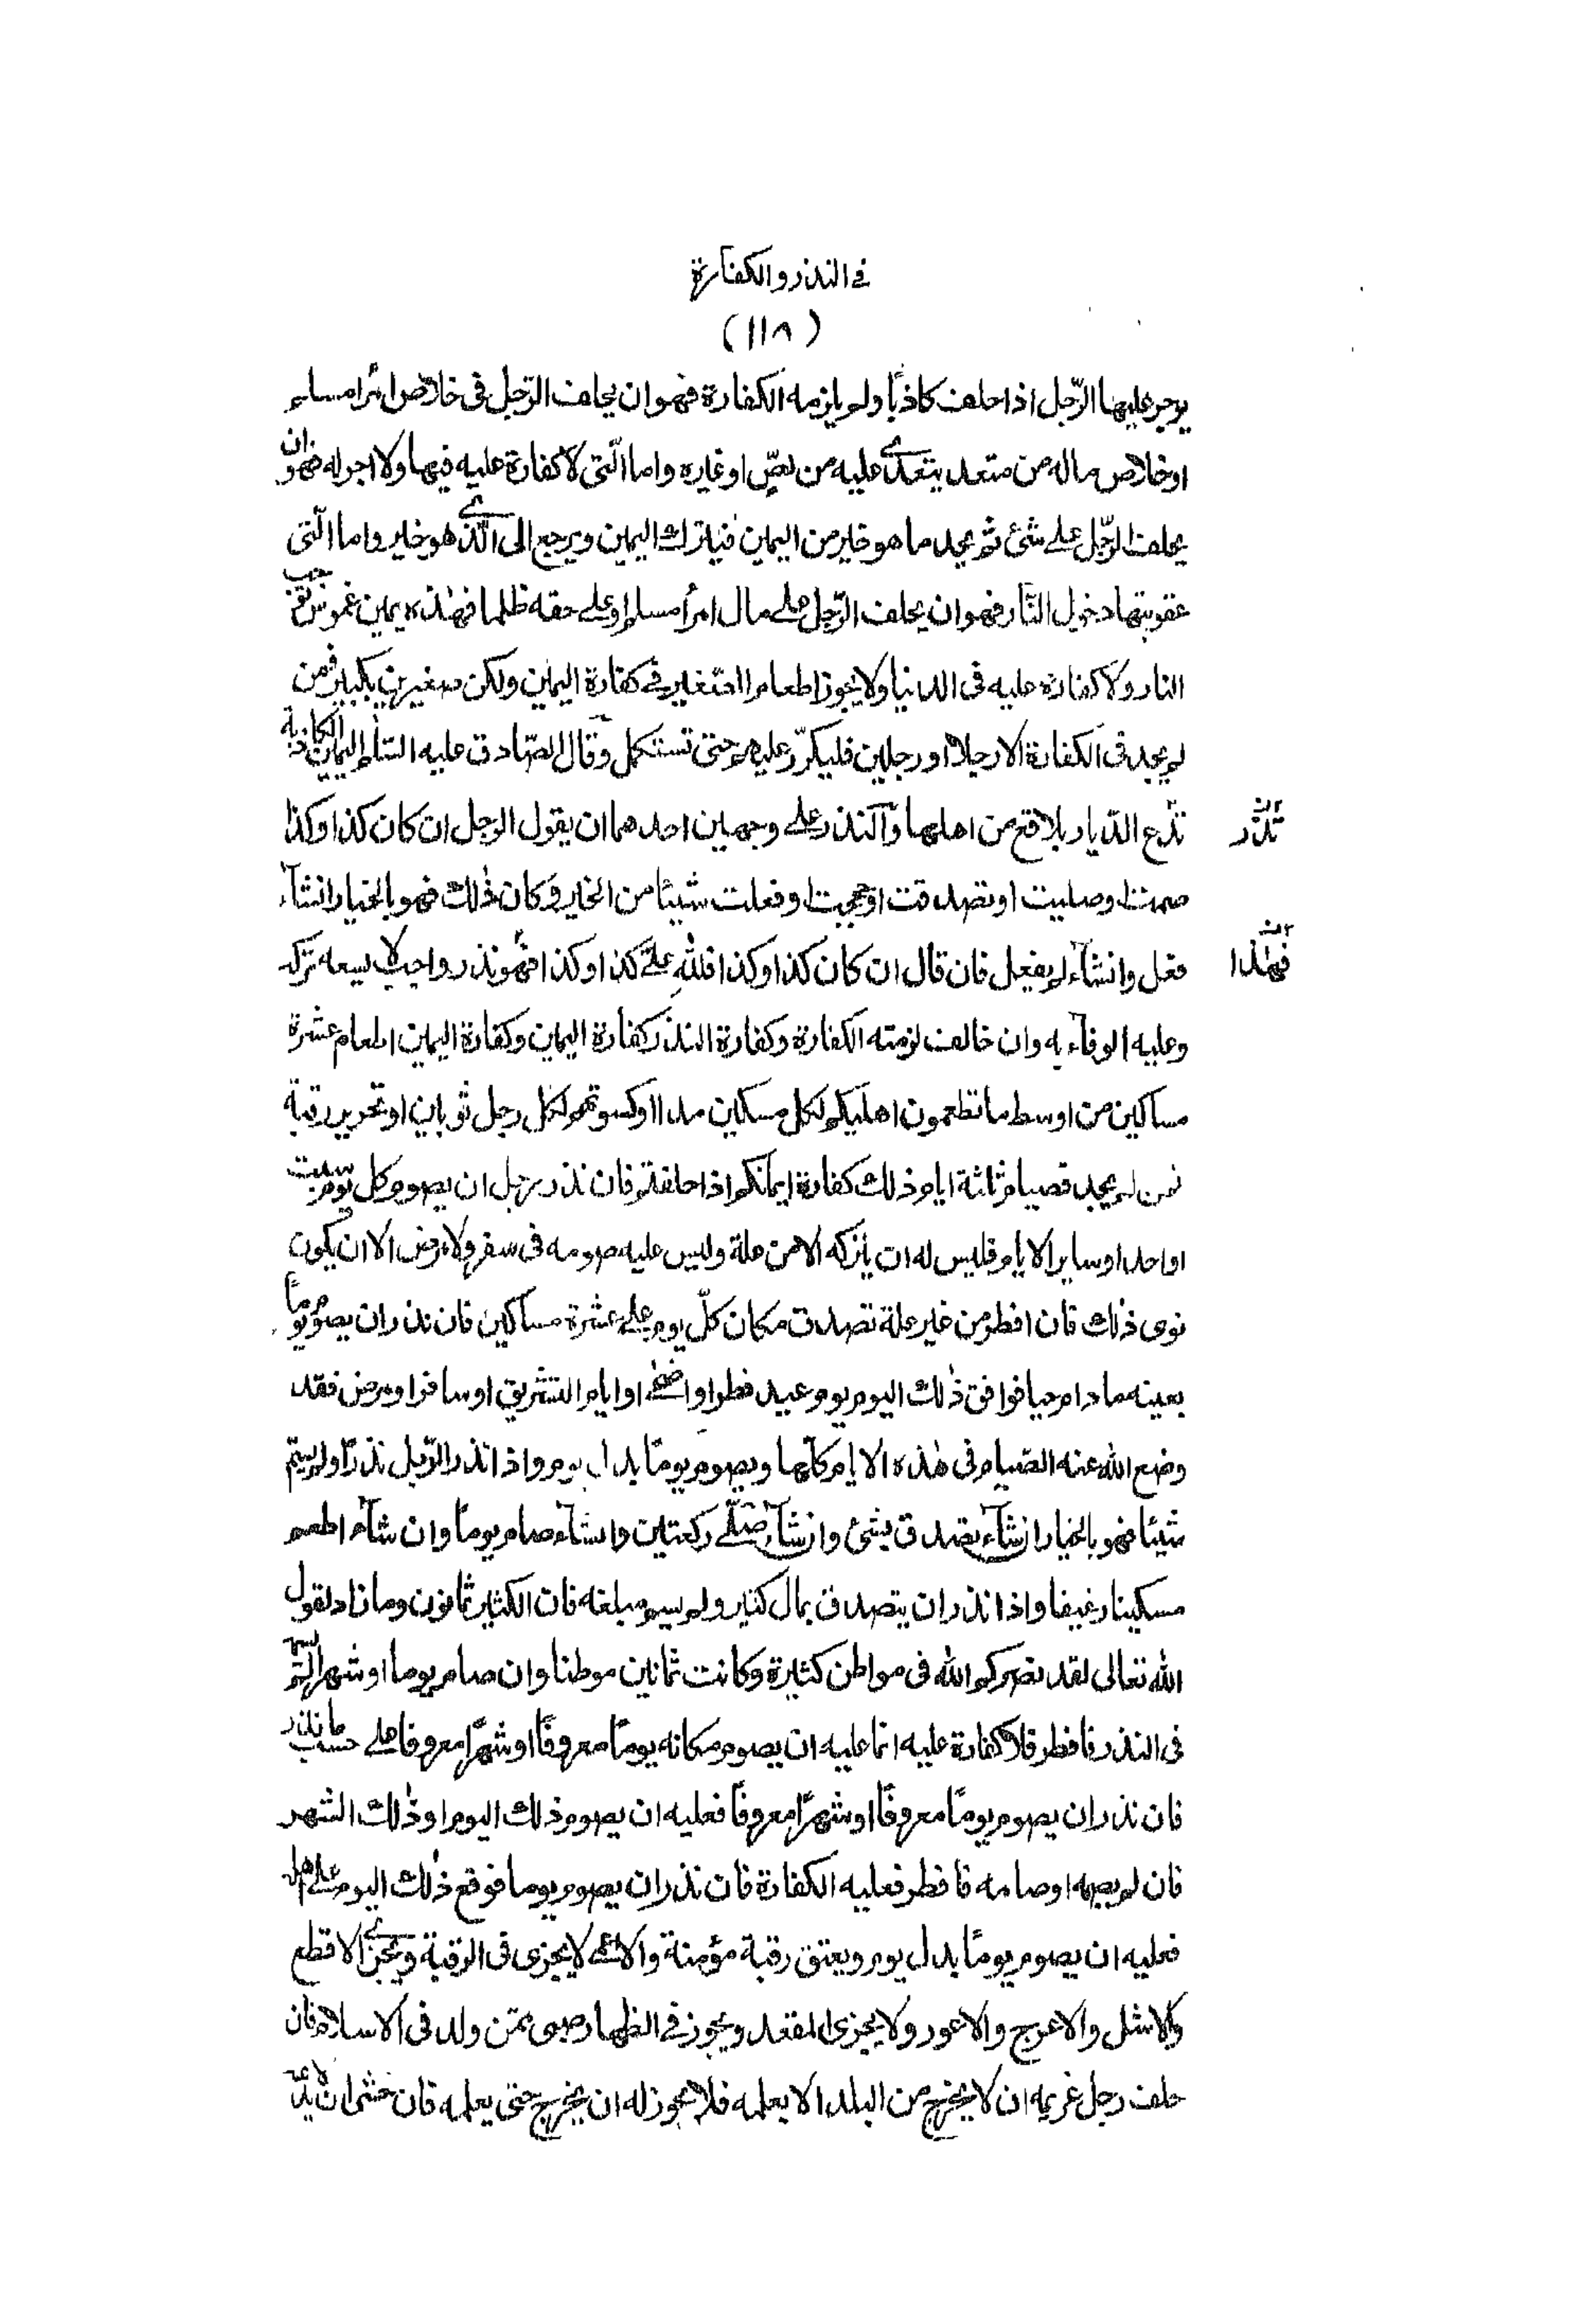 في النذر والكفارة
(١١٨)
يوجر عليها الرّجل اذا حلف كاذبًا ولم يلزمه الكفارة فهو ان يحلف الرّجل فى خلاص امرأ مسلم
او خلاص ماله من متعد يتعدى عليه من لصّ او غيره واما الّتى لا كفارة عليه فيها ولا اجر له فهو ان
يحلف الرّجل على شئ ثم يجد ما هو خير من اليمين فيترك اليمين ويرجع الى الّذى هو خير واما الّتى
عقوبتها دخول النّار فهو ان يحلف الرّجل على مال امرأ مسلم او على حقه ظلما فهذه يمين غموس توجب
النار ولا كفارة عليه فى الدنيا ولا يجوز اطعام الصّغير في كفارة اليمين ولكن صغيرين بكبير فمن
لم يجد فى الكفارة الا رجلا او رجلين فليكرّر عليهم حتى تستكمل وقال الصّادق عليه السّلم اليمين الكاذبة
تدع الدّيار بلاقع من اهلها والنذر على وجهين احدهما ان يقول الرجل ان كان كذا وكذا
تذر
صمت او صليت او تصدقت او حججت او فعلت شيئًا من الخير وكان ذلك فهو بالخيار انشآء
فعل وانشآء لم يفعل فان قال ان كان كذا وكذا فللّه علىّ كذا وكذا فهو نذر واجب لا يسعه تركه
فهذا
وعليه الوفآء به وان خالف لزمته الكفارة وكفارة النذر كفارة اليمين وكفارة اليمين اطعام عشرة
مساكين من اوسط ما تطعمون اهليكم لكل مسكين مد او كسوتهم لكل رجل ثوبين او تحرير رقبة
فمن لم يجد فصيام ثلثة ايام ذلك كفارة ايمانكم اذا حلفتم فان نذر رجل ان يصوم كل يوم سبت
او احد او ساير الايام فليس له ان يتركه الا من علة وليس عليه صومه فى سفر ولا مرض الا ان يكون
نوى ذلك فان افطر من غير علة تصدق مكان كلّ يوم على عشرة مساكين فان نذر ان يصوم يومًا
بعينه ما دام حيا فوافق ذلك اليوم يوم عيد فطر او اضحى او ايام التشريق او سافر او مرض فقد
وضع الله عنه الصّيام فى هذه الايام كلّها ويصوم يومًا بدل يوم واذا نذر الرّجل نذرًا ولم يسمّ
شيئا فهو بالخيار انشآء تصدق بشئ وانشآء صلّى ركعتين وانشآء صام يومًا وان شآء اطعم
مسكينا رغيفا واذا نذر ان يتصدق بمال كثير ولم يسم مبلغه فان الكثير ثمانون وما زاد لقول
الله تعالى لقد نصركم الله فى مواطن كثيرة وكانت ثمانين موطنا وان صام يوما او شهرا لم يسمه
فى النذر فافطر فلا كفارة عليه انما عليه ان يصوم مكانه يومًا معروفًا او شهرًا معروفا على حسب ما نذر
فان نذر ان يصوم يومًا معروفًا او شهرًا معروفًا فعليه ان يصوم ذلك اليوم او ذلك الشهر
فان لم يصمه او صامه فافطر فعليه الكفارة فان نذر ان يصوم يوما فوقع ذلك اليوم على اهله
فعليه ان يصوم يومًا بدل يوم ويعتق رقبة مؤمنة والاعمى لا يجزى فى الرقبة ويجزى الاقطع
والاشل والاعرج والاعور ولا يجزى المقعد ويجوز في الظهار صبى ممّن ولد فى الاسلام فان
حلف رجل غريمه ان لا يخرج من البلد الا بعلمه فلا يجوز له ان يخرج حتى يعلمه فان خشى ان لا يدعه